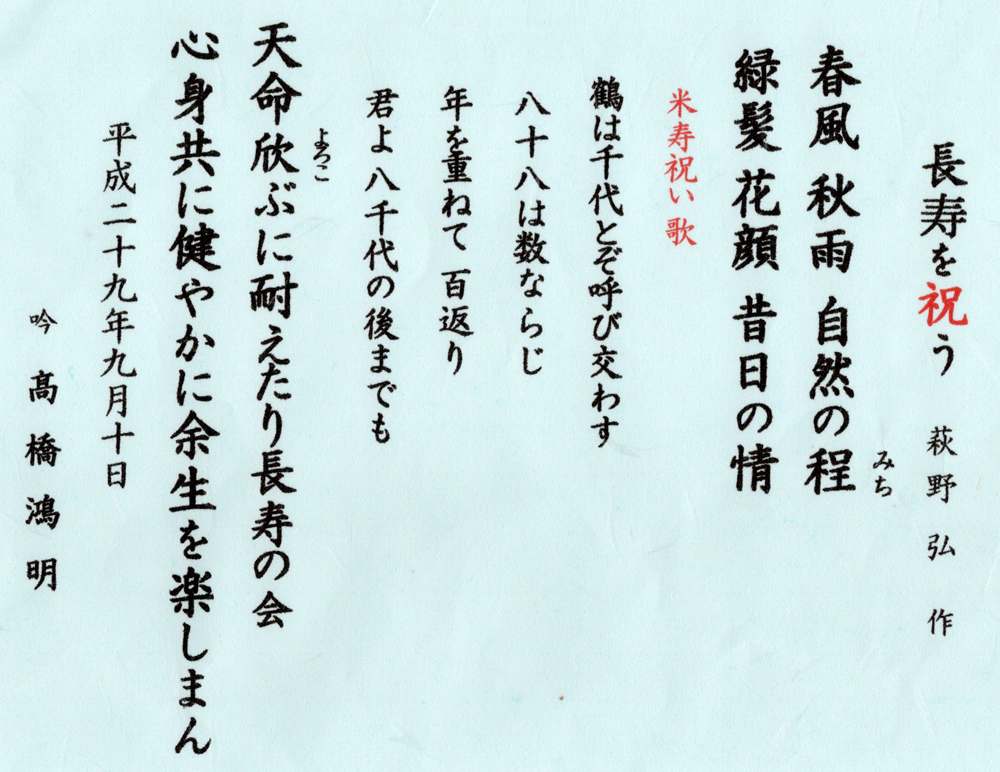 長寿を祝う 萩野弘 作
春風 秋雨 自然の程
みち
緑髪 花顔 昔日の情
米寿祝い歌
鶴は千代とぞ呼び交わす
八十八は数ならじ
年を重ねて 百返り
君よ八千代の後までも
よろこ
天命欣ぶに耐えたり長寿の会
心身共に健やかに余生を楽しまん
平成二十九年九月十日
吟 高橋鴻明